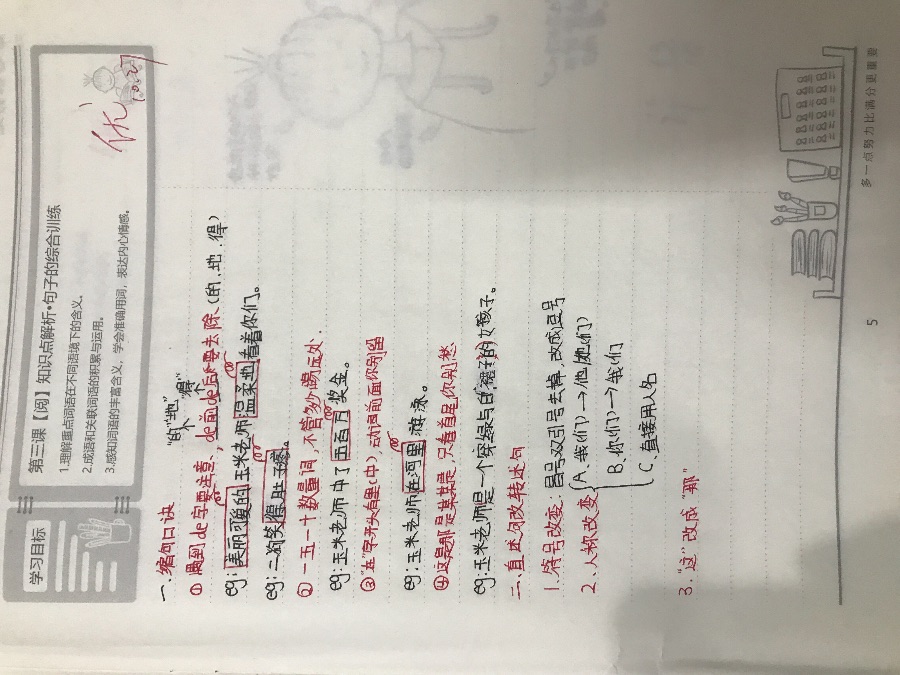 学习目标
第三课【阅】知识点解析·句子的综合训练
1.理解重点词语在不同语境下的含义。
2.成语和关联词语的积累与运用。
3.感知词语的丰富含义，学会准确用词，表达内心情感。
优
10.27
一.缩句口诀
"的""地""得"
① 遇到de字要注意、de前de后要去除(的、地.得)
eg:美丽可爱的玉米老师温柔地看着你们。
eg:二狗笑得肚子疼。
② 一五一十数量词,不管多少踢远处.
eg:玉米老师中了五百万奖金。
③"在"字开头有里(中),动词前面你别留
eg:玉米老师在河里游泳。
④这是那是某某是,只看首尾你别愁
eg:玉米老师是一个穿绿与白裙子的女孩子。
二、直述句改转述句
1.符号改变:冒号双引号去掉,改成逗号
2.人称改变 A、我(们)→他/她(们)
B.你(们)→我(们
C.直接用人名
3."这"改成"那"
多一点努力比满分更重要
5